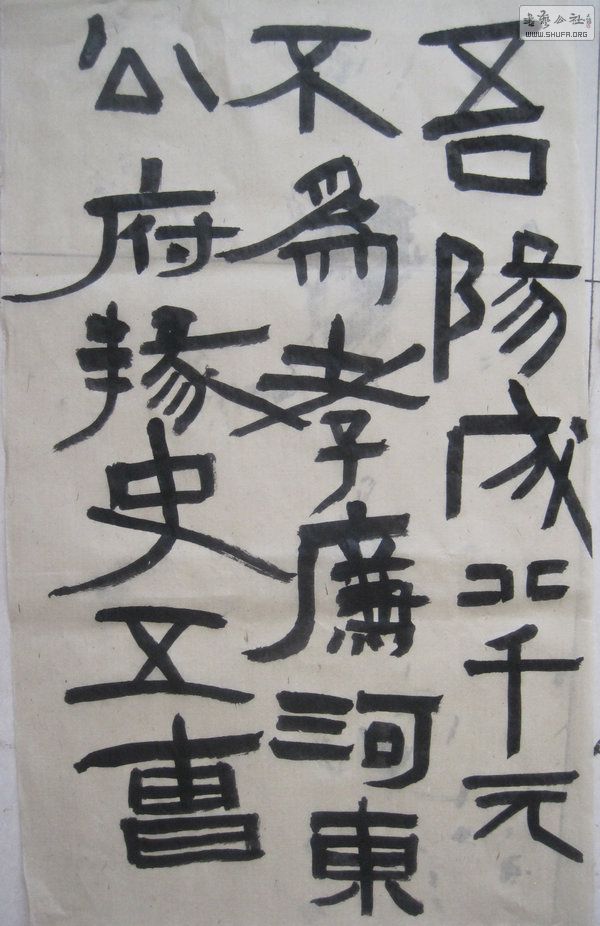 吾陽成北千元
不爲孝廉河東
公府掾史五曹
书艺公社
WWW.SHUFA.ORG